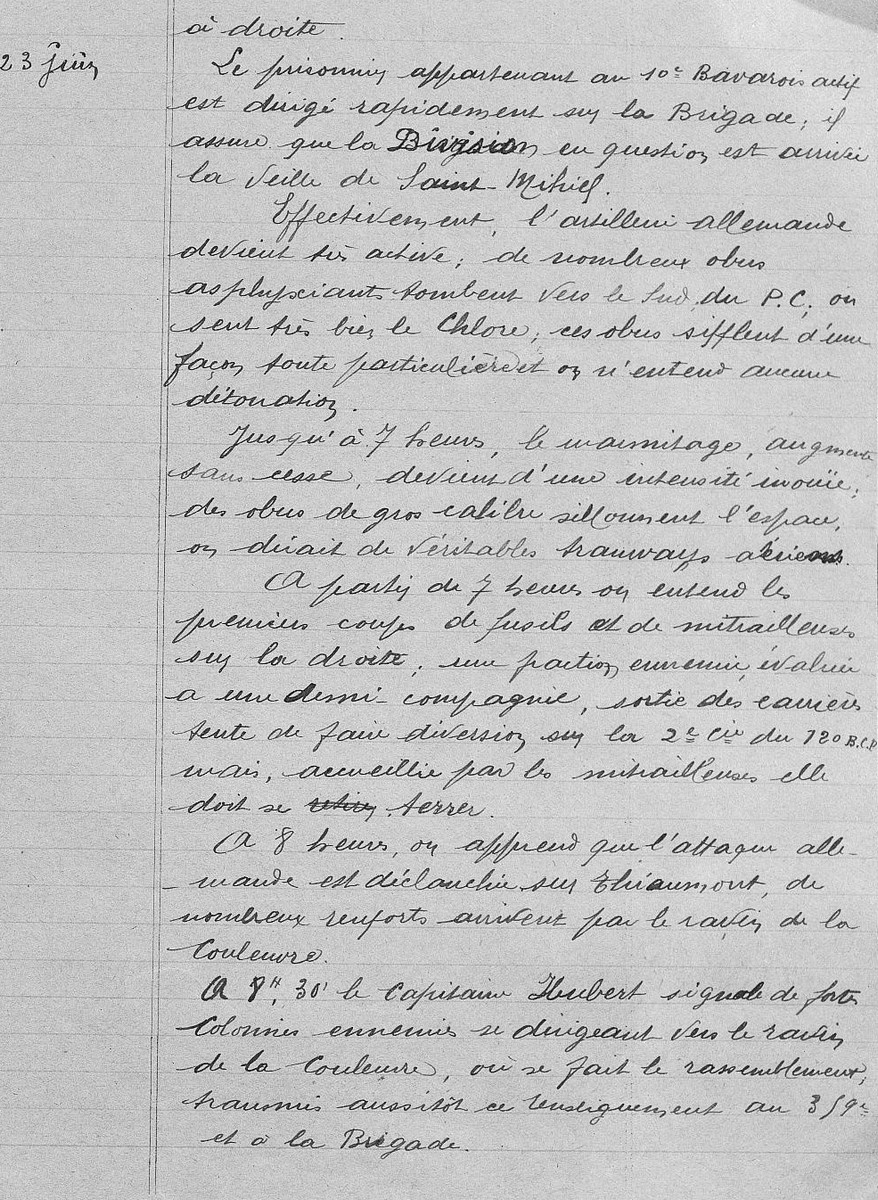 à droite.
23 Juin
Le prisonnier appartenant au 10e Bavarois actif
est dirigé rapidement sur la Brigade; il
assure que la Division en question est arrivée
la veille de Saint-Mihiel.
Effectivement, l'artillerie allemande
devient très active; de nombreux obus
asphyxiants tombent vers le Sud du P.C; on
sent très bien le Chlore; ces obus sifflent d'une
façon toute particulière et on n'entend aucune
détonation.
Jusqu'à 7 heures, le marmitage, augmente
sans cesse, devient d'une intensité inouïe;
des obus de gros calibre sillonnent l'espace,
on dirait de véritables tramways aériens.
A partir de 7 heures on entend les
premiers coups de fusils et de mitrailleuses
sur la droite; une fraction ennemie, évaluée
a une demi-compagnie, sortie des carrières
tente de faire diversion sur la 2e Cie du 120 B.C.P
mais, accueillie par les mitrailleuses elle
doit se retirer terrer.
A 8 heures, on apprend que l'attaque alle-
-mande est déclanchée sur Thiaumont, de
nombreux renforts arrivent par le ravin de la
Couleuvre.
A 8H, 30' le Capitaine Hubert signale de fortes
Colonnes ennemies se dirigeant vers le ravin
de la Couleuvre, où se fait le rassemblement,
transmis aussitôt ce renseignement au 359e
et à la Brigade.